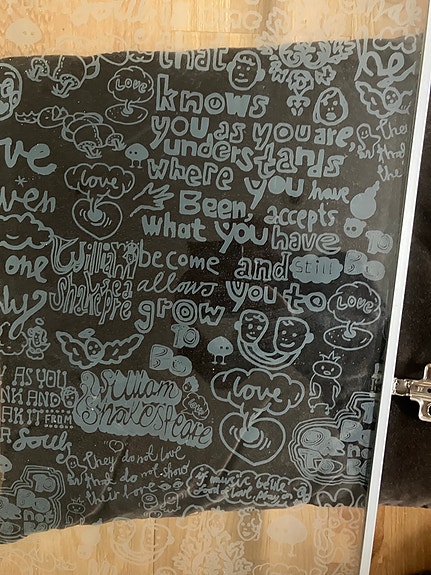 that
knows
you, as you are,
understands
where you have
Been, accepts
what you have
become and still
allows you to
grow
William
Shakespeare
Love
Love
Love
Love
ve
ven
one
To
Be
To
Be
the
that
the
he
AS YOU
AND
IT FROM
Souls
William
Shakespeare
They do not love
that do not show
their love
If music be the
food of love, play on